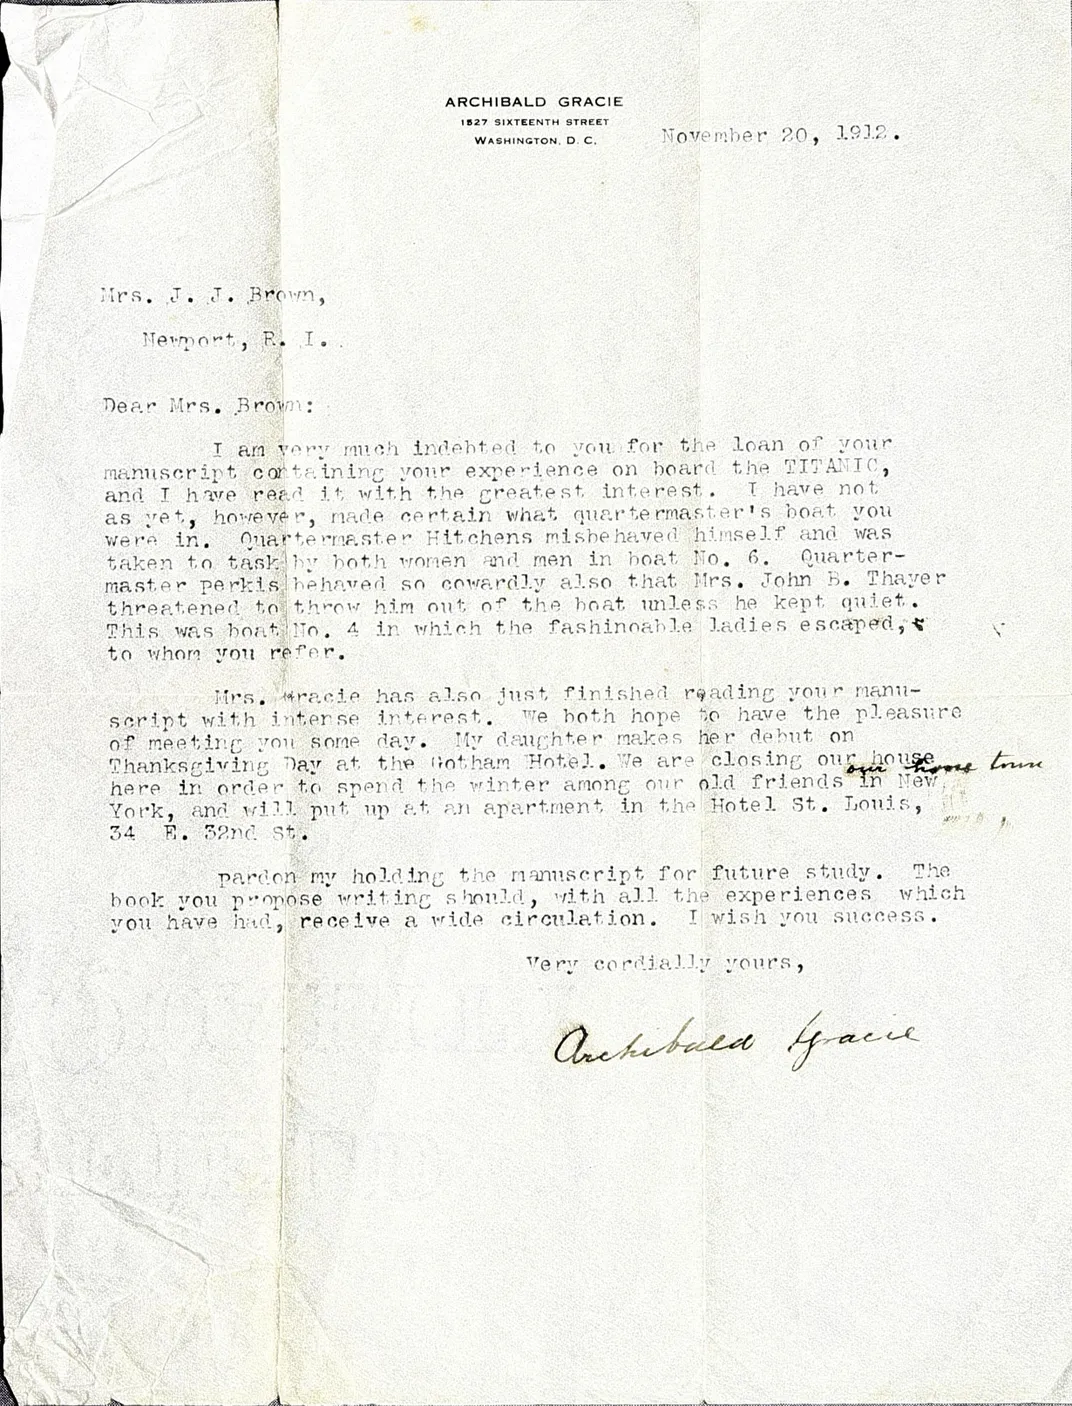 ARCHIBALD GRACIE
1527 SIXTEENTH STREET
WASHINGTON, D. C.
November 20, 1912.
Mrs. J. J. Brown,
Newport, R. I.
Dear Mrs. Brown:
I am very much indebted to you for the loan of your
manuscript containing your experience on board the TITANIC,
and I have read it with the greatest interest. I have not
as yet, however, made certain what quartermaster's boat you
were in. Quartermaster Hitchens misbehaved himself and was
taken to task by both women and men in boat No. 6. Quarter-
master perkis behaved so cowardly also that Mrs. John B. Thayer
threatened to throw him out of the boat unless he kept quiet.
This was boat No. 4 in which the fashinoable ladies escaped,
to whom you refer.
Mrs. Gracie has also just finished reading your manu-
script with intense interest. We both hope to have the pleasure
of meeting you some day. My daughter makes her debut on
Thanksgiving Day at the Gotham Hotel. We are closing our house
our home town
here in order to spend the winter among our old friends in New
York, and will put up at an apartment in the Hotel St. Louis,
34 E. 32nd St.
pardon my holding the manuscript for future study. The
book you propose writing should, with all the experiences which
you have had, receive a wide circulation. I wish you success.
Very cordially yours,
Archibald Gracie